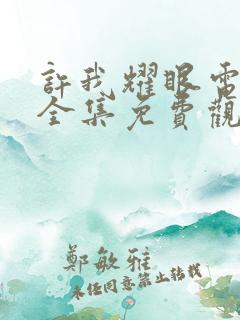 許我耀眼電
全集免費觀
鄭敏雅
未經同意禁止轉載